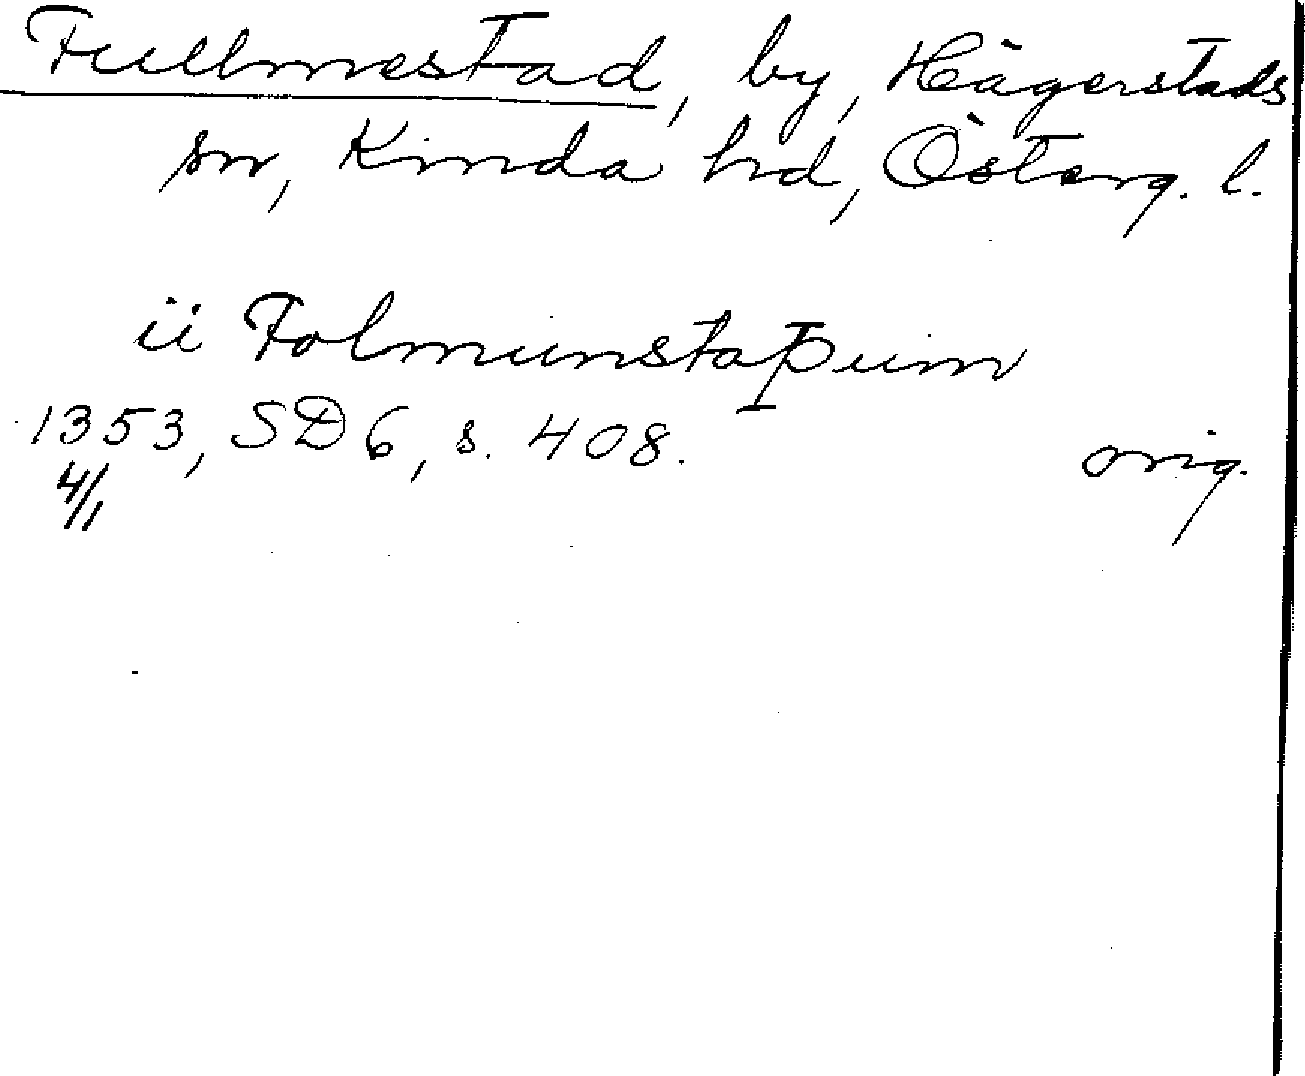 Fullmestad, by, Hägerstads
sn, Kinda hd, Österg. l.
ii Folmunstaþum
1353, SD 6, s. 408.
4/1
orig.